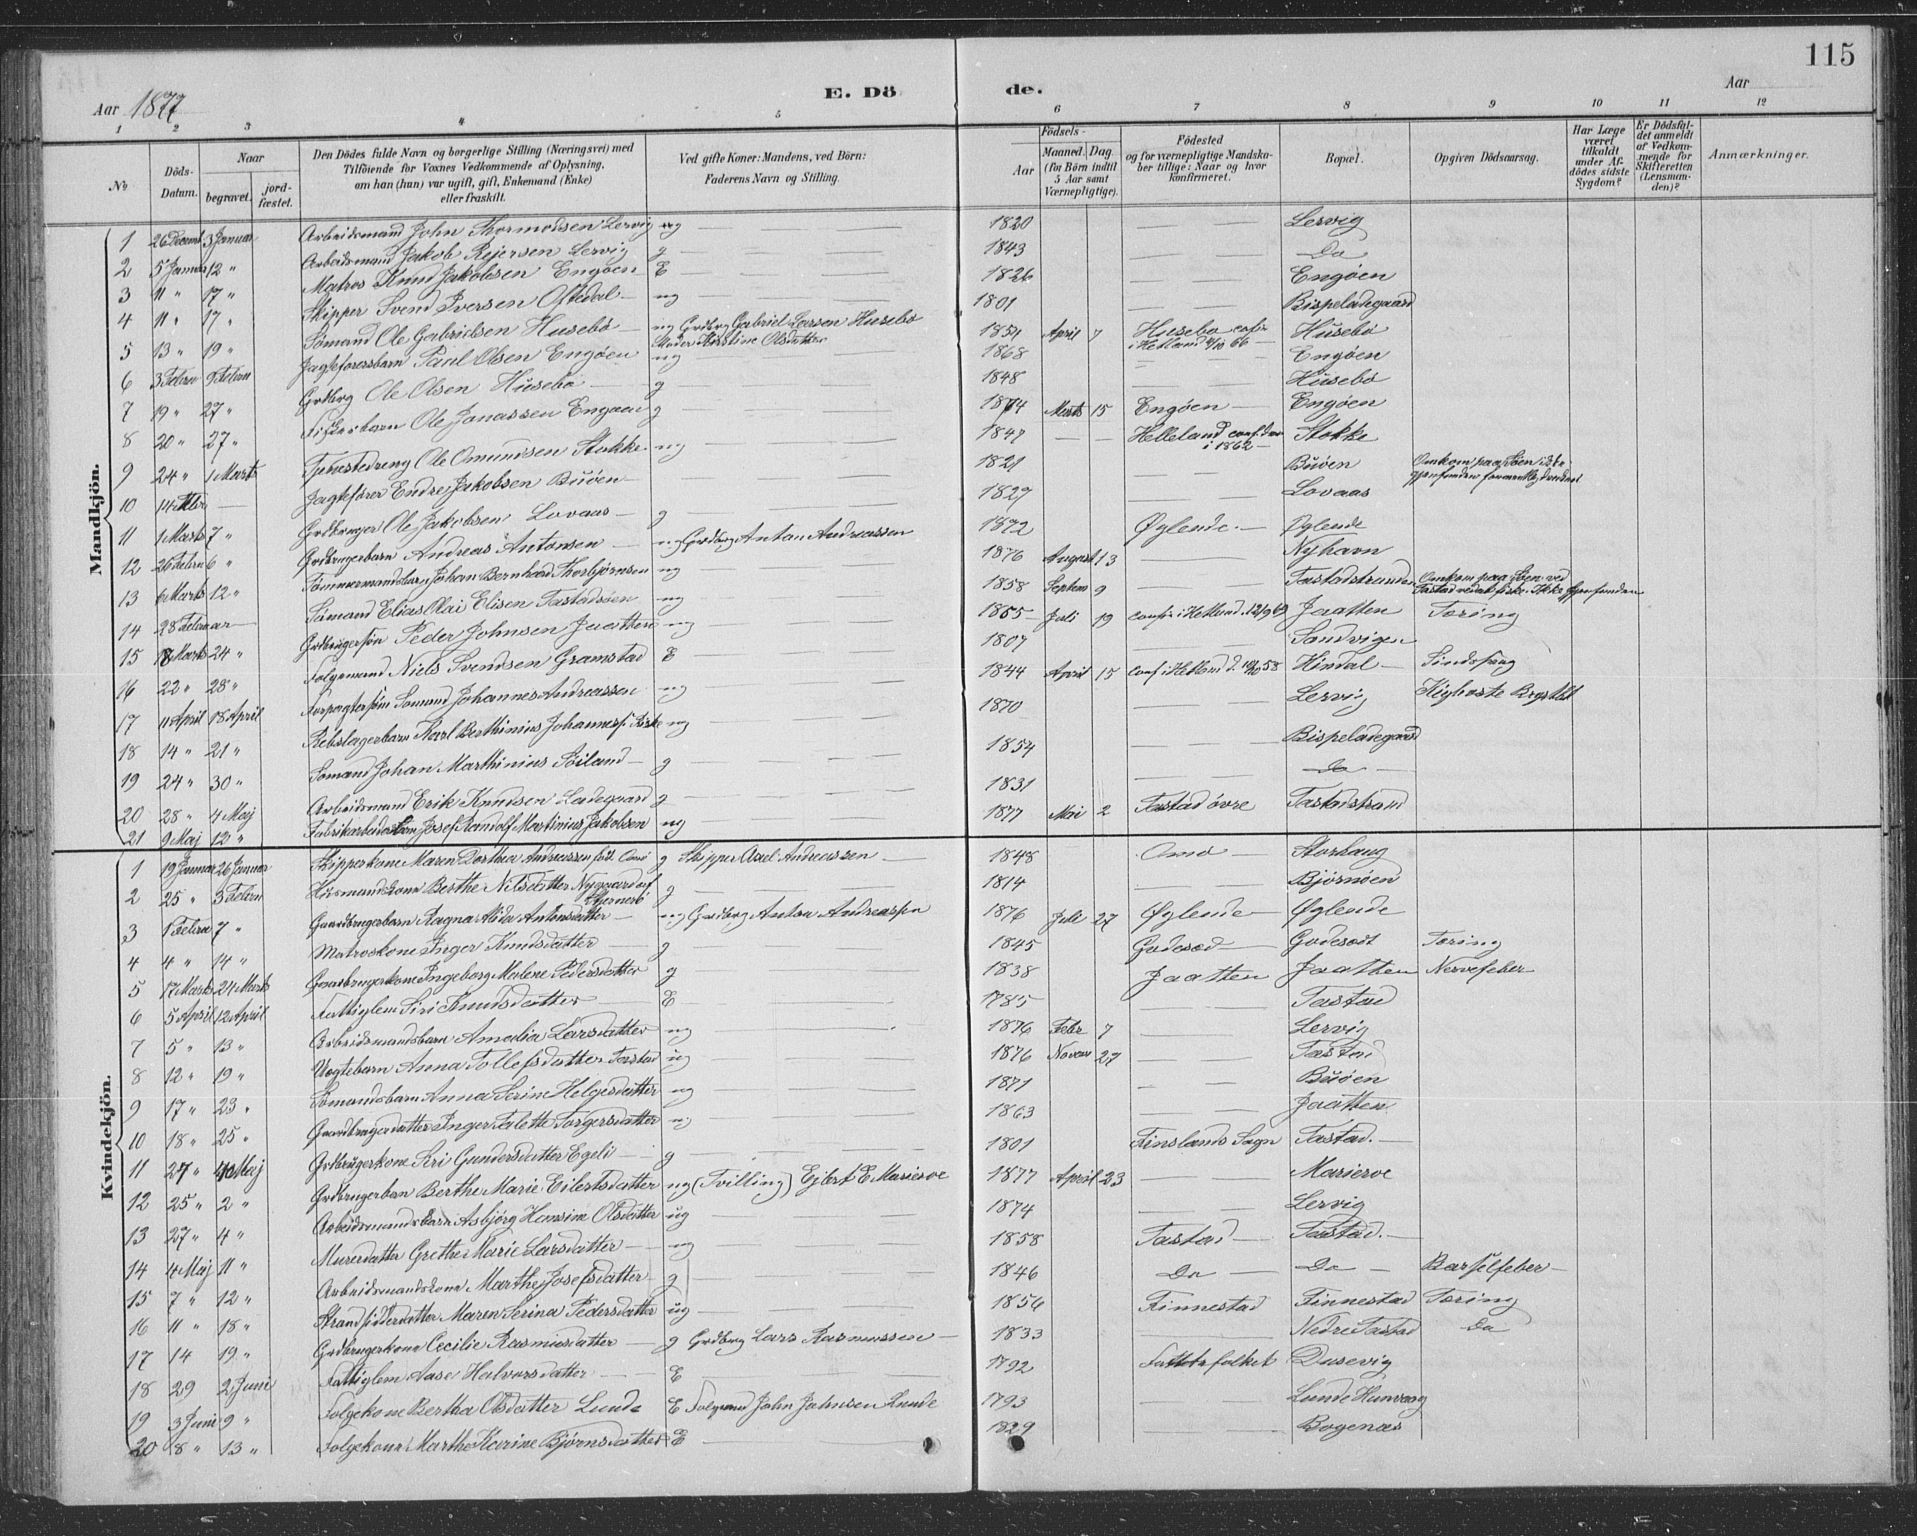 115
Aar 1877
E. Dö
de.
Aar
1 2 3 4 5 6 7 8 9 10 11 12
No
Döds-Datum.
Naar
begravet.
jordfæstet.
Den Dödes fulde Navn og borgerlige Stilling (Næringsvei) med
Tilföiende for Voxnes Vedkommende af Oplysning,
om han (hun) var ugift, gift, Enkemand (Enke)
eller fraskilt.
Ved gifte Koner: Mandens, ved Börn:
Faderens Navn og Stilling.
Födsels-
Aar
Maaned. Dag
(for Börn indtil
5 Aar samt
Værnepligtige).
Födested
og for værnepligtige Mandska-
ber tillige: Naar og hvor
konfirmeret.
Bopæl.
Opgiven Dödsaarsag.
Har Læge
været
tilkaldt
under Af-
dödes sidste
Sygdom?
Er Dödsfal-
det anmeldt
af Vedkom-
mende for
Skifteretten
(Lensman-
den)?
Anmærkninger.
Mandkjön.
1 26 Decemb 3 Januar Arbeidsmand John Thormodsen Lervig ug — 1820 — Lervig
2 5 Januar 12 " Arbeidsmand Jakob Rejersen Lervig g — 1843 — Do
3 11 " 17 " Matros Knud Jakobsen Engøen E — 1826 — Engøen
4 11 " 17 " Skipper Svend Iversen Oftedal — ug — 1801 — Bispeladegaard
5 13 " 19 " Sømand Ole Gabrielsen Husebø — ug Grdbrg Gabriel Larsen Husebø 1854 April 7 Husebø conf. i Hetland 66 Husebø
6 3 Febru 9 Febru Jagteførersbarn Paul Olsen Engøen ug 1868 — Engøen
7 19 " 27 " Grdbrg Ole Olsen Husebø — g — 1848 — Husebø
8 20 " 27 " Fiskerbarn Ole Jonassen Engøen g — 1874 Marts 15 Engøen — Engøen
9 24 " 1 Marts Tjenestedreng Ole Omundsen Stokke ug — 1847 — Helleland conf. der i 1862 — Stokke
10 14 — Jagtefører Endre Jakobsen Buøen — 1821 — Buøen Omkom paa Søen
11 1 Marts 7 " Grdbruger Ole Jakobsen Lovaas — g — 1827 — Lovaas
12 26 Febru 6 " Grdbrugerbarn Andreas Antonsen — ug Grdbrg Anton Andreassen 1872 Øglende — Øglende
13 6 Marts 12 " Tømmermandsbarn Johan Bernhard Thorbjørnsen ug — 1876 August 13 — Nyhavn
14 28 Februar — Sømand Elias Olai Elisen Tastadsøen ug — 1858 Septem 9 — Tastadstranden Omkom paa Søen ved
15 18 Marts 24 " Grdbrugersøn Peder Johnsen Jaatten ug — 1855 Juli 19 conf. i Hetland 12/9 69 Jaatten Tæring
16 22 " 28 " Folgemand Niels Svendsen Gramstad E — 1807 — Sandvigen
17 11 April 18 April Forpagtersøn Sømand Johannes Andreassen ug — 1844 April 15 conf. i Hetland d. 58 Hindal — Sindssvag
18 14 " 21 " Rebslagerbarn Karl Berthinius Johannes ug — 1870 — Lervig Kighoste
19 24 " 30 " Sømand Johan Marthinius Søiland — g — 1854 — Bispeladegaard
20 28 " 4 Maj Arbeidsmand Erik Knudsen Ladegaard g — 1831 — Do —
21 9 Maj 12 " Fabrikarbeiderbarn Josef Randolf Martinius Jakobsen ug — 1877 Mai 2 Tastad øvre Tastadstrand
Kvindekjön.
1 19 Januar 26 Januar Skipperkone Maren Dorthea Andreassen født Omø g Skipper Axel Andreassen — 1848 Omø — Storhaug
2 25 " 3 Febru Husmandskone Berthe Nilsdatter Nygaard g — 1814 — Bjørnøen
3 1 Febru 7 " Gaardbrugerbarn Ragna Alida Antonsdatter — ug Grdbrg Anton Andreassen 1876 Juli 27 Øglende — Øglende
4 4 " 14 " Matroskone Inger Knudsdatter — g — 1845 Godeset — Godeset Tæring
5 17 Marts 24 Marts Gaardbrugerkone Ingeborg Malene Pedersdatter g — 1838 Jaatten Jaatten Nervefeber
6 5 April 12 April Fattiglem Siri Knudsdatter — E — 1785 — Tastad
7 5 " 13 " Arbeidsmandsbarn Amalia Larsdatter ug — 1876 Febr 7 — Lervig
8 12 " 19 " Vogtebarn Anna Tollefsdatter Tastad ug — 1876 Novem 27 — Tastad
9 17 " 23 " Sømandsbarn Anna Serine Helgesdatter ug — 1871 — Buøen
10 18 " 25 " Gaardbrugerdatter Inger Talette Torgersdatter ug — 1863 — Jaatten
11 27 " 4 Maj Grdbrugerkone Siri Gundersdatter Egeli — g — 1801 Finslands Sogn Tastad. —
12 25 " 2 " Grdbrugerbarn Berthe Marie Eilertsdatter ug (Tvilling) Ejlert E Marieroe 1877 April 23 — Marieroe
13 27 " 4 " Arbeidsmandsbarn Asbjørg Hansine Olsdatter ug — 1874 — Lervig
14 4 Maj 11 " Murerdatter Grethe Marie Larsdatter — ug — 1858 Tastad — Tastad. —
15 7 " 12 " Arbeidsmandskone Marthe Josefsdatter g — 1846 Do — Do — Barselfeber —
16 11 " 18 " Strandsidderdatter Maren Serina Pedersdatter ug — 1856 Finnestad Finnestad Tæring
17 14 19 " Grdbrugerkone Cecilie Rasmusdatter — g Grdbrg Lars Rasmussen — 1833 — Nedre Tastad Do
18 29 2 Juni Fattiglem Aase Halvorsdatter — E — 1792 Dusevig
19 3 Juni 9 " Folgekone Bertha Olsdatter Lunde E Folgmand John Johnsen Lunde 1793 — Lunde Hunvaag
20 8 " 13 " Folgekone Marthe Karine Bjørnsdatter E — 1829 — Bogenæs